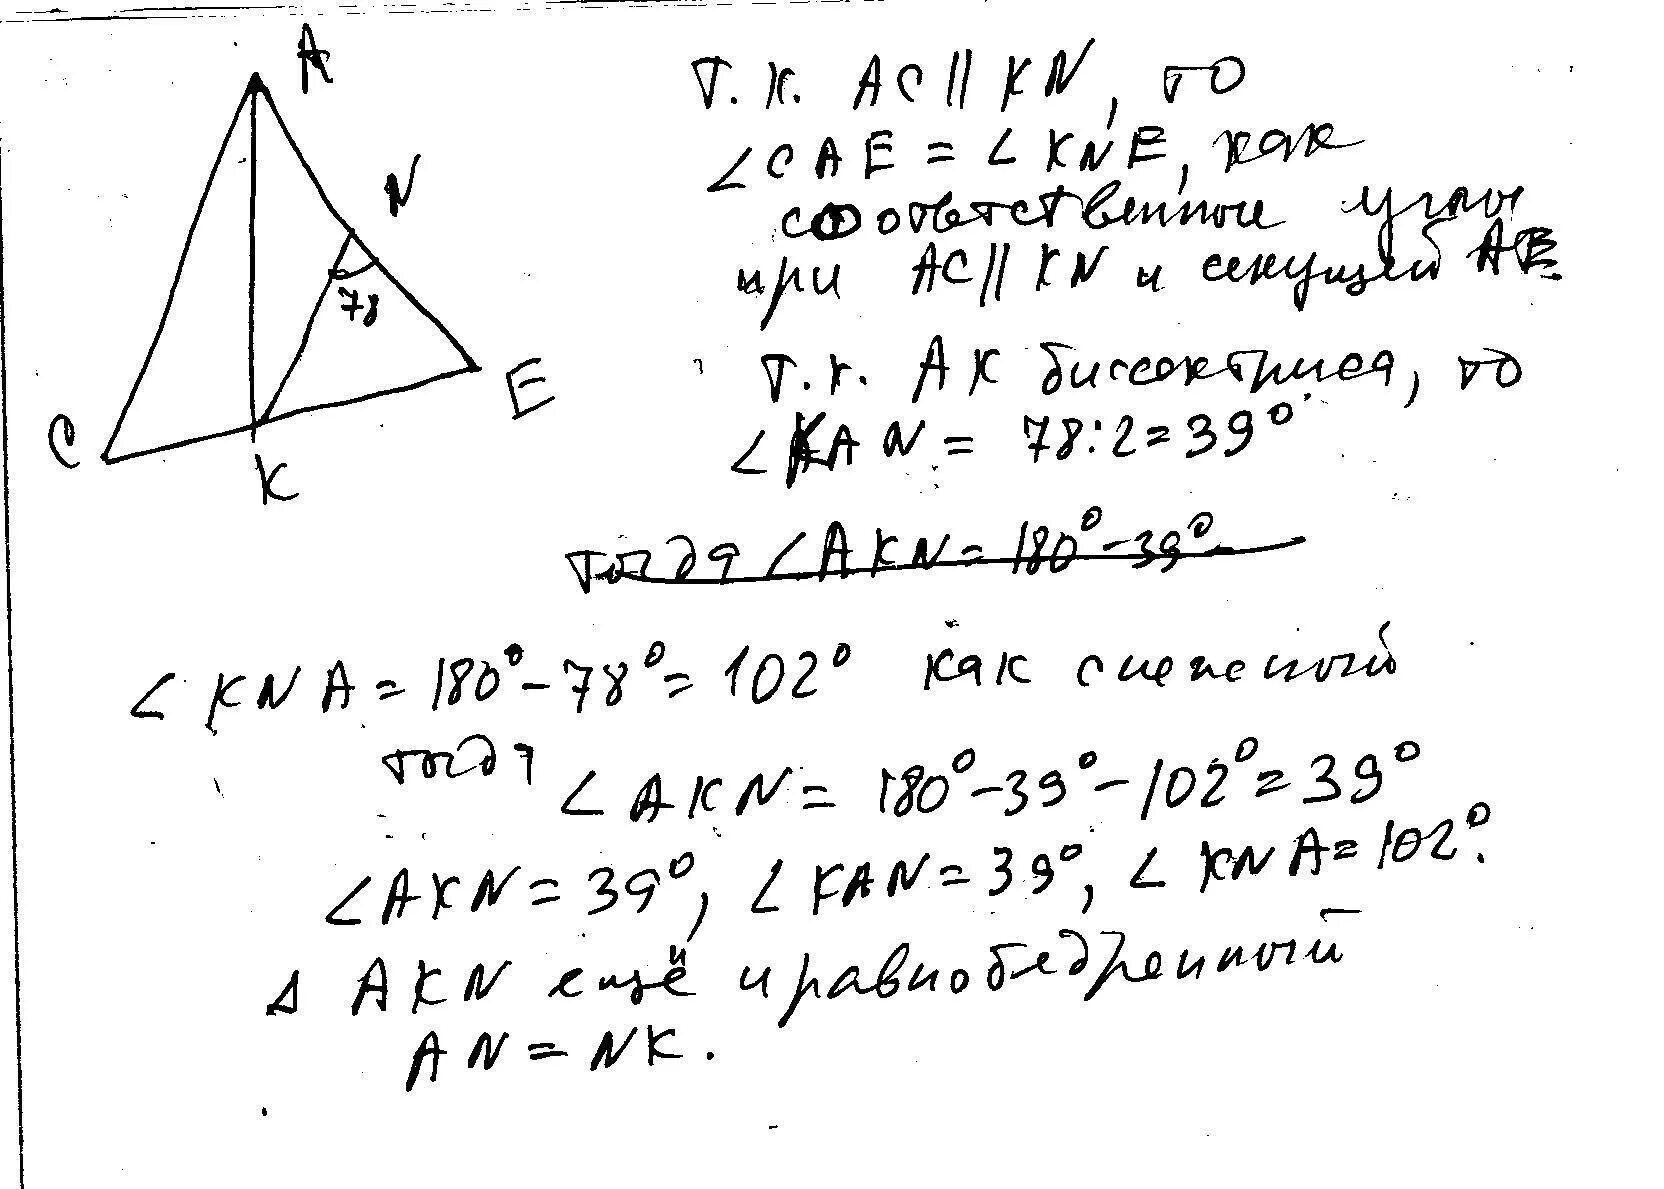 A
N
78
E
C
K
Т.к. AC || KN, то
∠CAE = ∠KNE, как
соответственные углы
при AC || KN и секущей AE
Т.к. AK биссектриса, то
∠KAN = 78:2=39°.
тогда ∠AKN = 180°-39°
∠KNA = 180°-78°= 102° как смежный
тогда
∠AKN = 180°-39°-102°=39°
∠AKN = 39°, ∠KAN = 39°, ∠KNA = 102°.
Δ AKN ещё и равнобедренный
AN = NK.